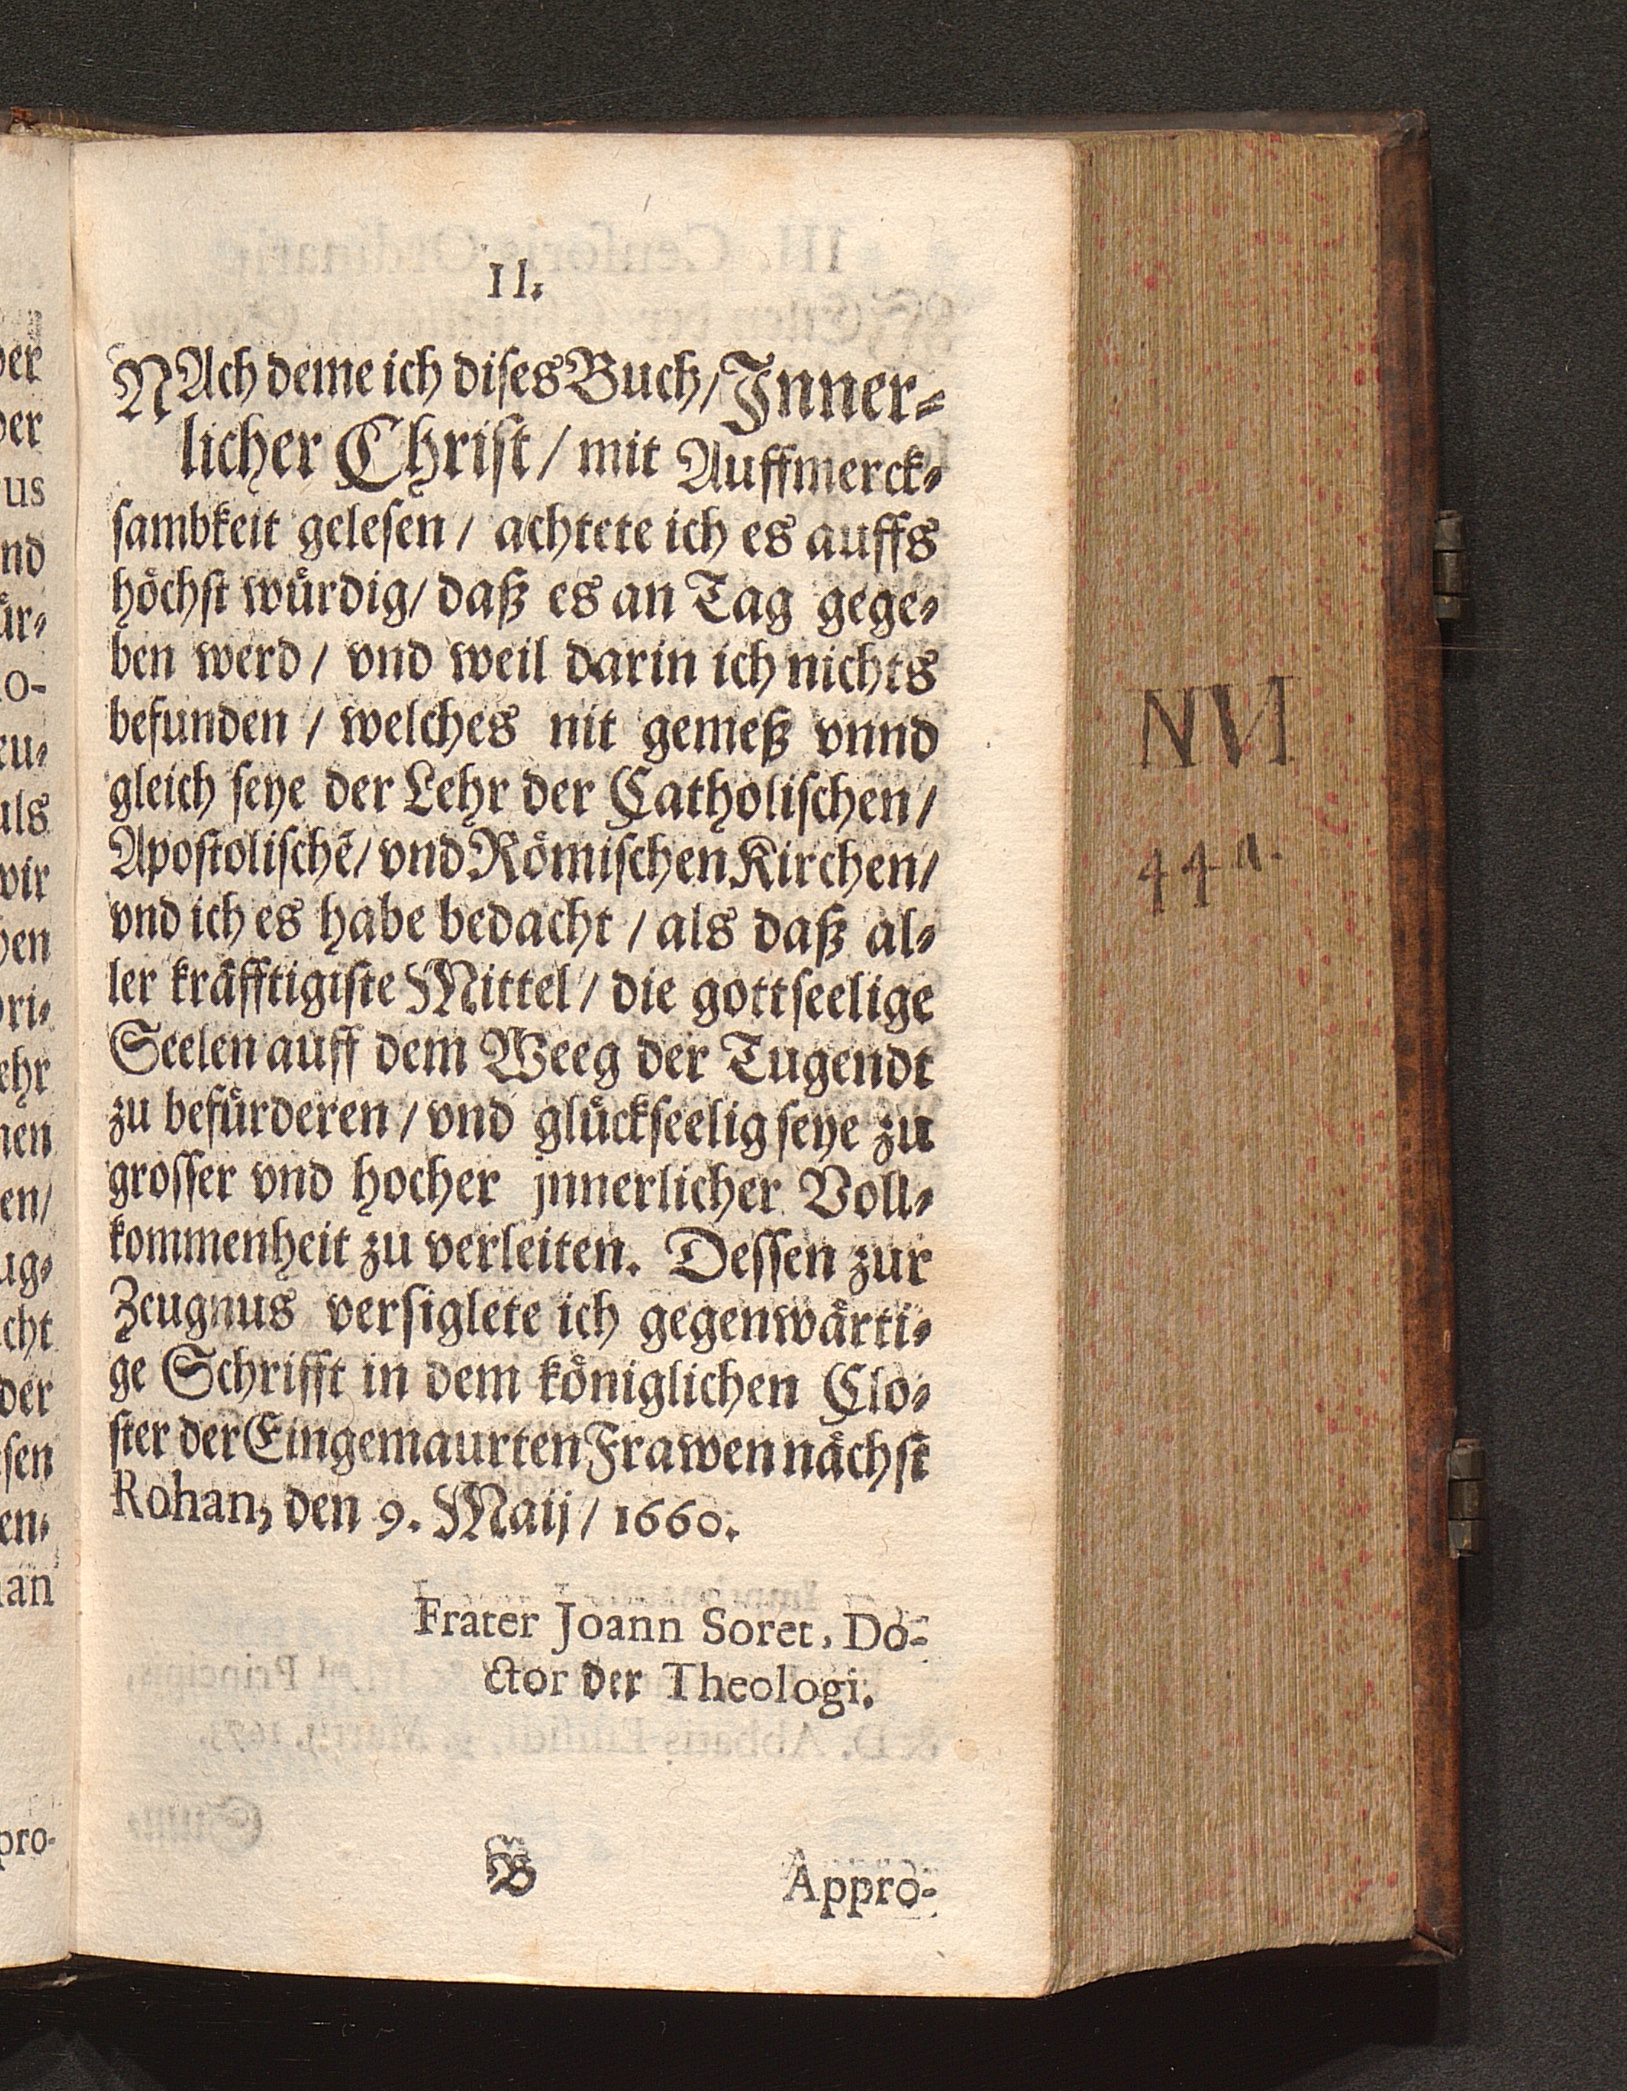 II.
NAch deme ich dises Buch/ Inner-
licher Christ/ mit Auffmerck-
sambkeit gelesen/ achtete ich es auffs
höchst würdig/ daß es an Tag gege-
ben werd/ vnd weil darin ich nichts
befunden/ welches nit gemeß vnnd
gleich seye der Lehr der Catholischen/
Apostolischẽ/ vnd Römischen Kirchen/
vnd ich es habe bedacht/ als daß al-
ler kräfftigiste Mittel/ die gottseelige
Seelen auff dem Weeg der Tugendt
zu befürderen/ vnd glückseelig seye zu
grosser vnd hocher jnnerlicher Voll-
kommenheit zu verleiten. Dessen zur
Zeugnus versiglete ich gegenwärti-
ge Schrifft in dem königlichen Clo-
ster der Eingemaurten Frawen nächst
Rohan, den 9. Maij/ 1660.
Frater Joann Soret, Do-
ctor der Theologi.
B
Appro-
NVI
44a.